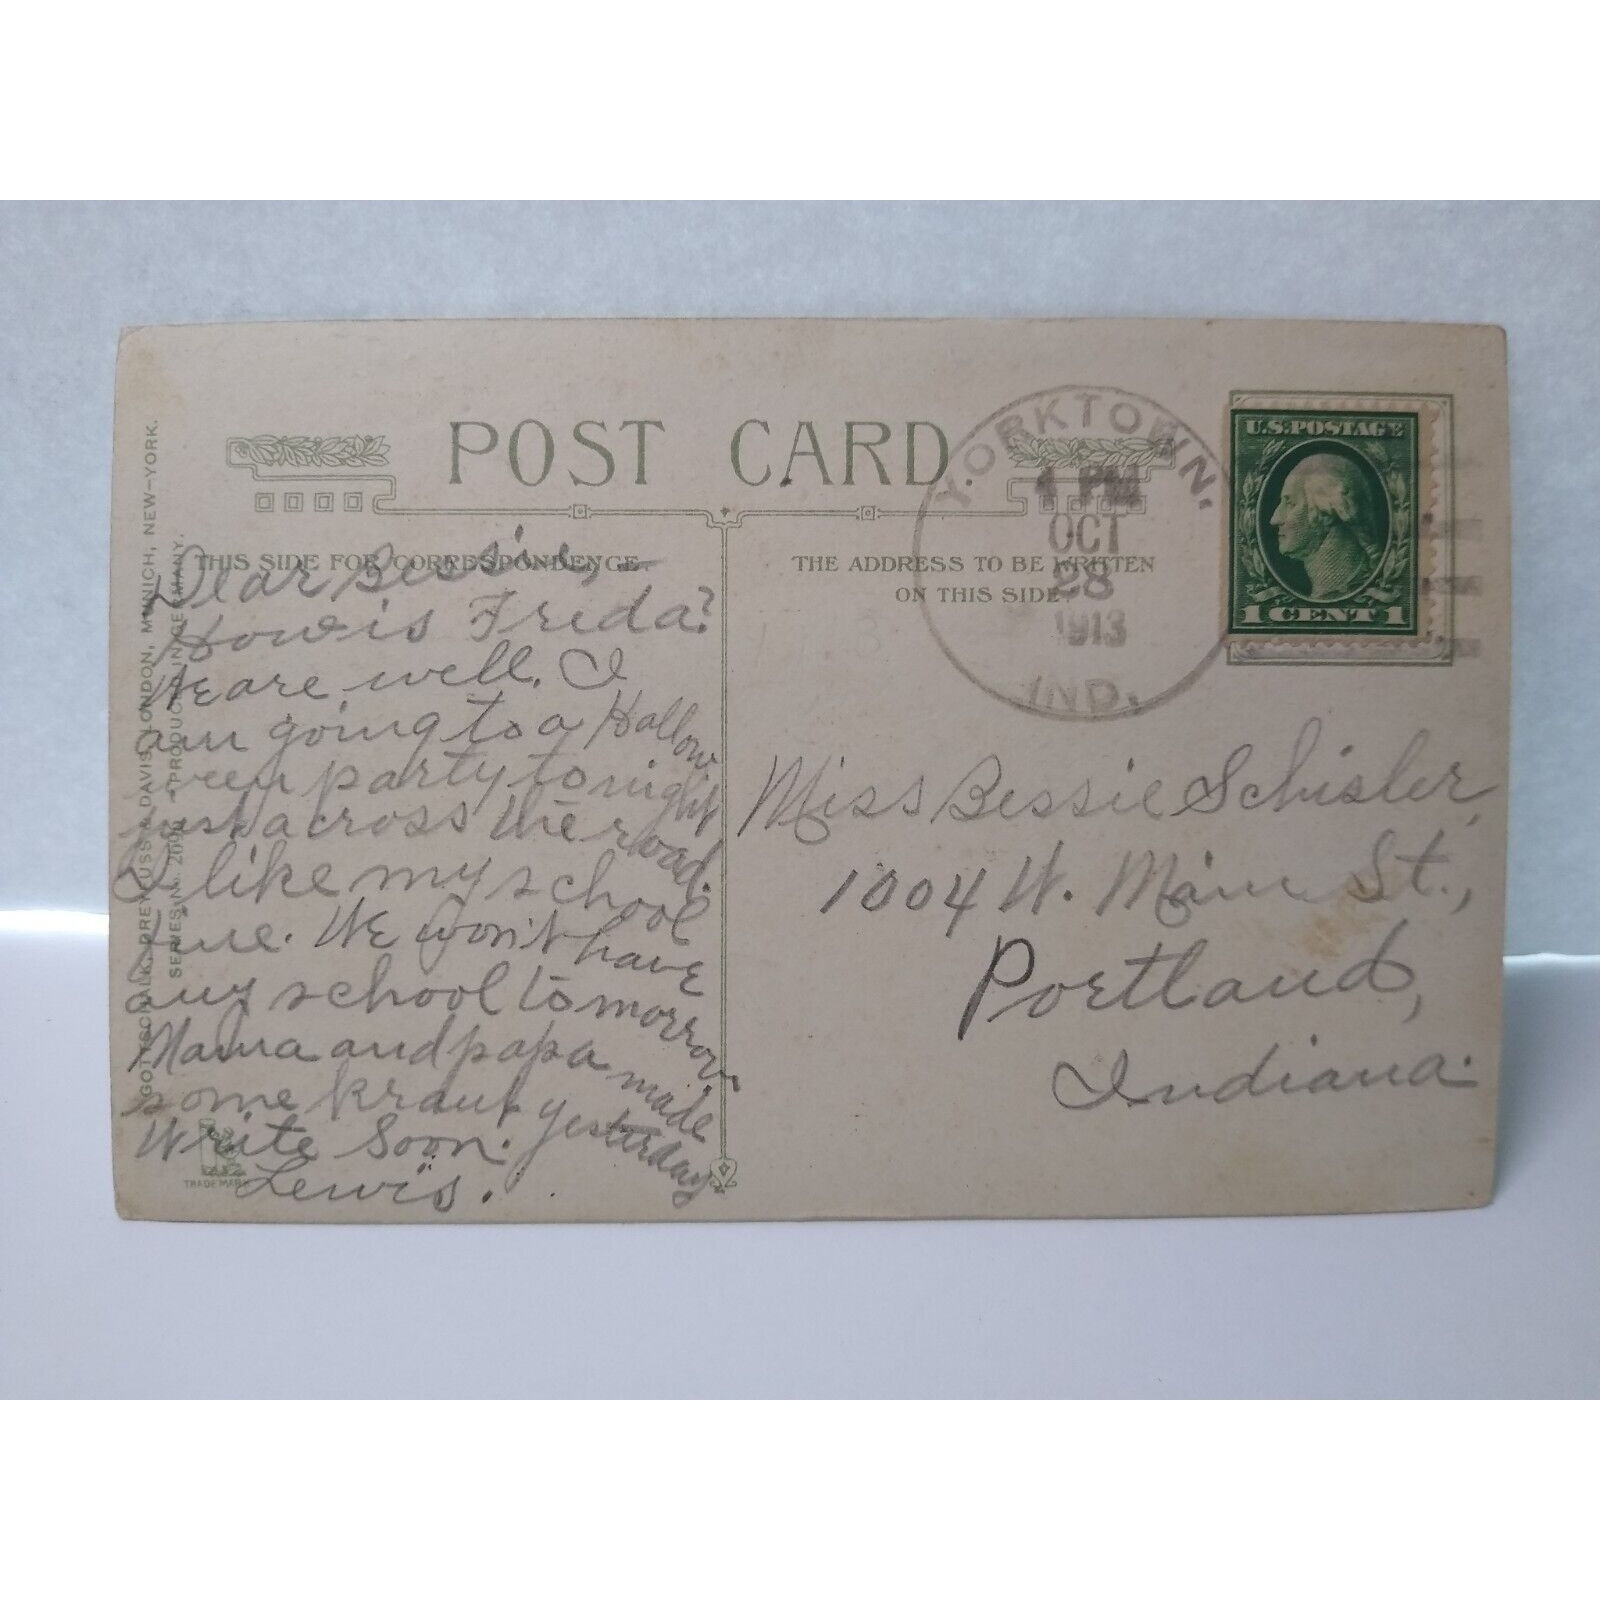 POST CARD
THIS SIDE FOR CORRESPONDENCE.
THE ADDRESS TO BE WRITTEN
ON THIS SIDE
YORKTOWN,
1 PM
OCT
28
1913
IND.
U.S. POSTAGE
1 CENT 1
Dear Bessie,—
How is Frida?
We are well. I
am going to a Hallow
een party tonight
just across the road.
I like my school
fine. We won't have
any school tomorrow
Mama and papa made
some kraut yesterday.
Write Soon.
Lewis.
Miss Bessie Schisler,
1004 W. Main St.,
Portland,
Indiana.
GOTTSCHALK, DREYFUSS & DAVIS, LONDON, MUNICH, NEW-YORK.
SERIES No. PRODUCED IN GERMANY.
TRADE MARK